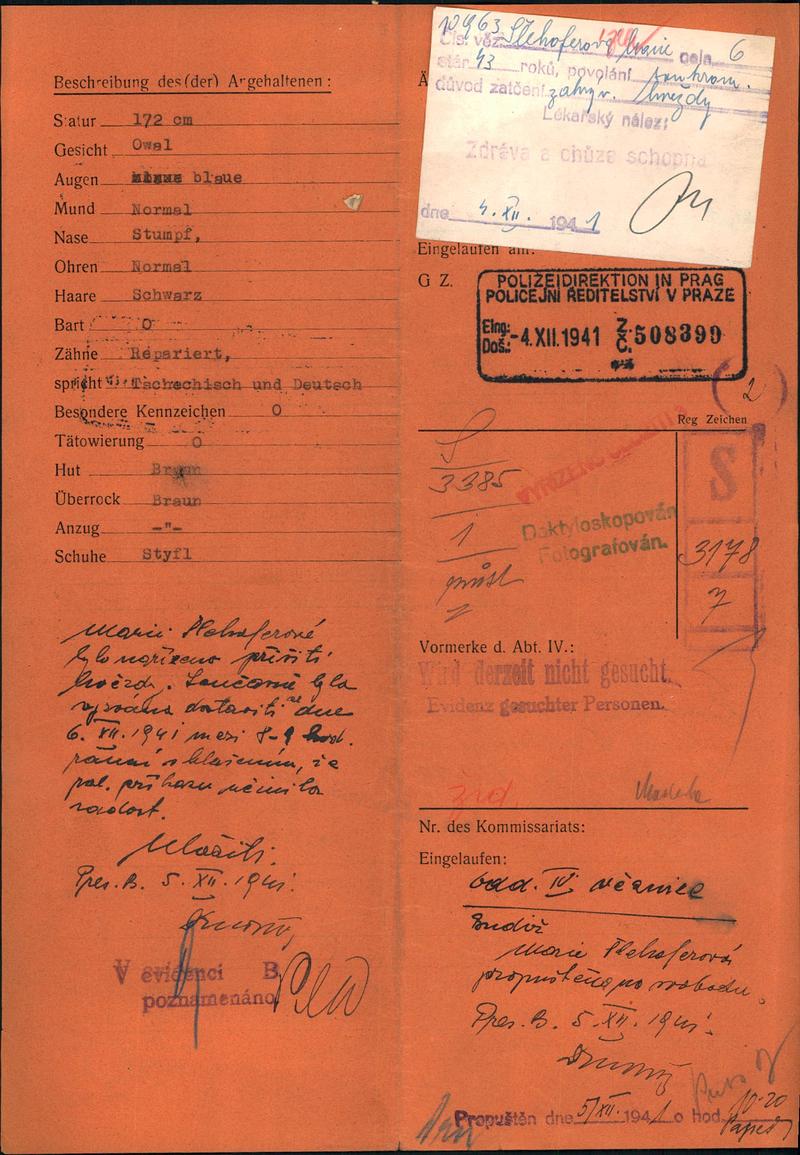 Beschreibung des (der) Angehaltenen :
Statur 172 cm
Gesicht Owal
Augen blaue
Mund Normal
Nase Stumpf,
Ohren Normal
Haare Schwarz
Bart O
Zähne Repariert,
spricht Tschechisch und Deutsch
Besondere Kennzeichen O
Tätowierung O
Hut Braun
Überrock Braun
Anzug -"-
Schuhe Styfl
Marii
bylo nařízeno přišíti
hvězdu. Současně byla
vyzvána dostaviti se dne
6. XII. 1941 mezi 8-9 hod.
ranní s hlášením, že
pol. příkazu učinila
zadost.
Pres. B. 5. XII. 1941.
V evidenci B.
poznamenáno
10963 Marie cela 6
Čís. věz.
stár 43 roků, povolání soukrom.
důvod zatčení zahyv. hvězdy
Lékařský nález:
Zdráva a chůze schopna
dne 4. XII. 1941
Eingelaufen am:
G Z.
POLIZEIDIREKTION IN PRAG
POLICEJNÍ ŘEDITELSTVÍ V PRAZE
Eing: Doš.: -4.XII.1941 Z. Č. 508399
2
Reg Zeichen
S
3385
1
S
3178
7
Daktyloskopován
Fotografován.
Vormerke d. Abt. IV.:
Wird derzeit nicht gesucht.
Evidenz gesuchter Personen.
Nr. des Kommissariats:
Eingelaufen:
odd. IV. věznice
Marie
propuštěna na svobodu.
Pres. B. 5. XII. 1941.
Propuštěn dne 5/XII. 1941 o hod. 10.20